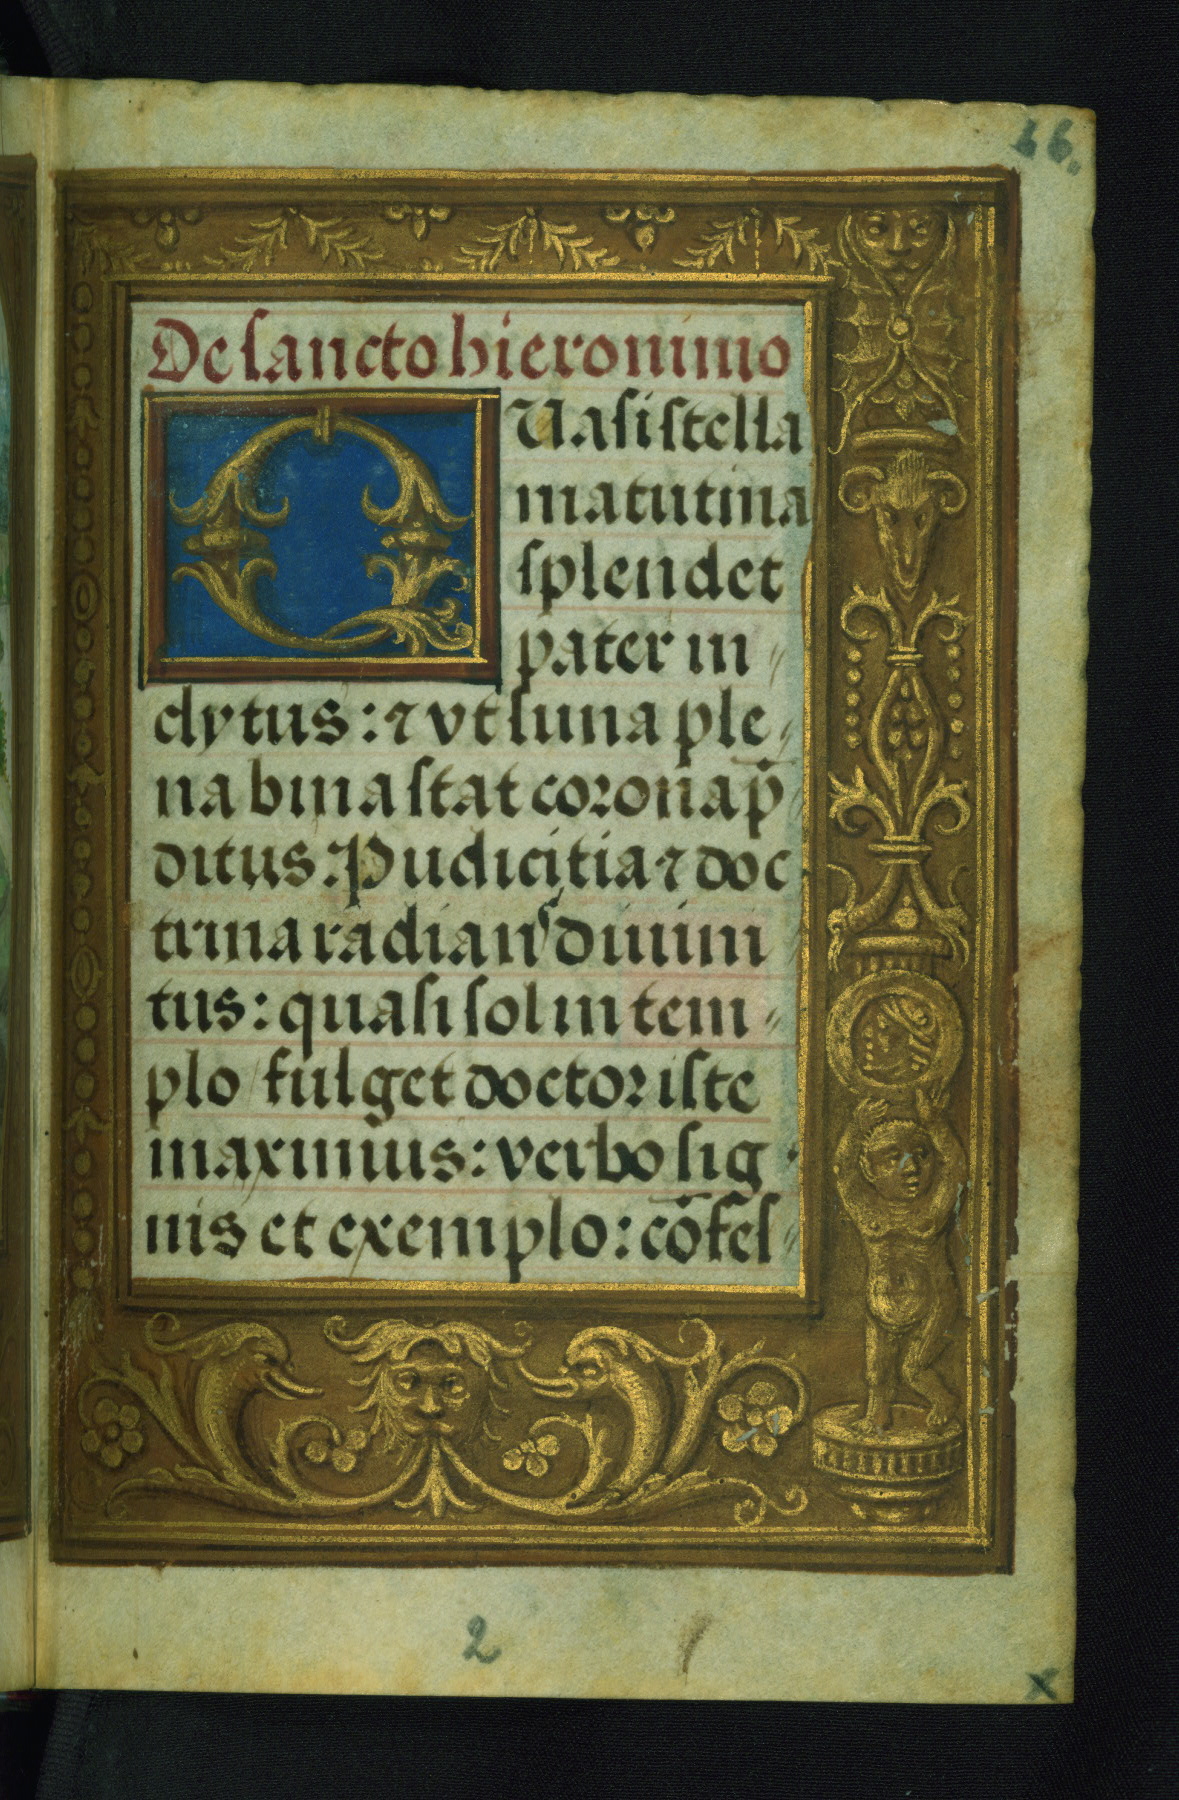 66.
De sancto hieronimo
QUasi stella
matutina
splendet
pater in
clytus: ⁊ vt luna ple
na bina stat corona p̄
ditus. Pudicitia ⁊ doc
trina radians diuini
tus: quasi sol in tem
plo fulget doctor iste
maximus: verbo sig
nis et exemplo: cōfes
2
x